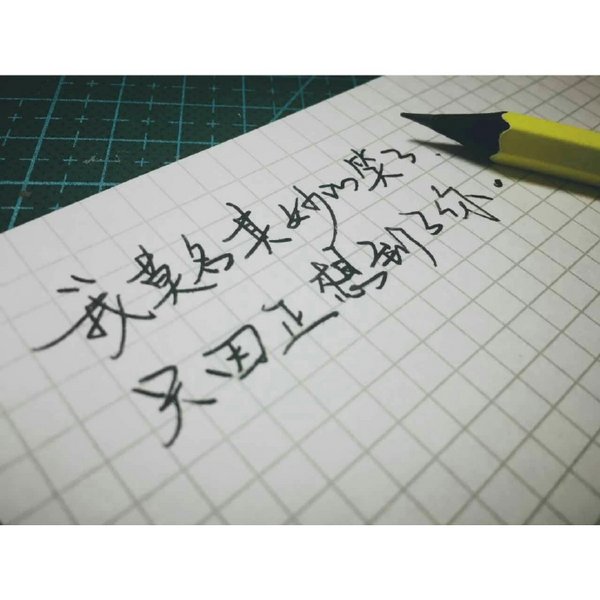 我莫名其妙的笑了.
只因正想到了你.